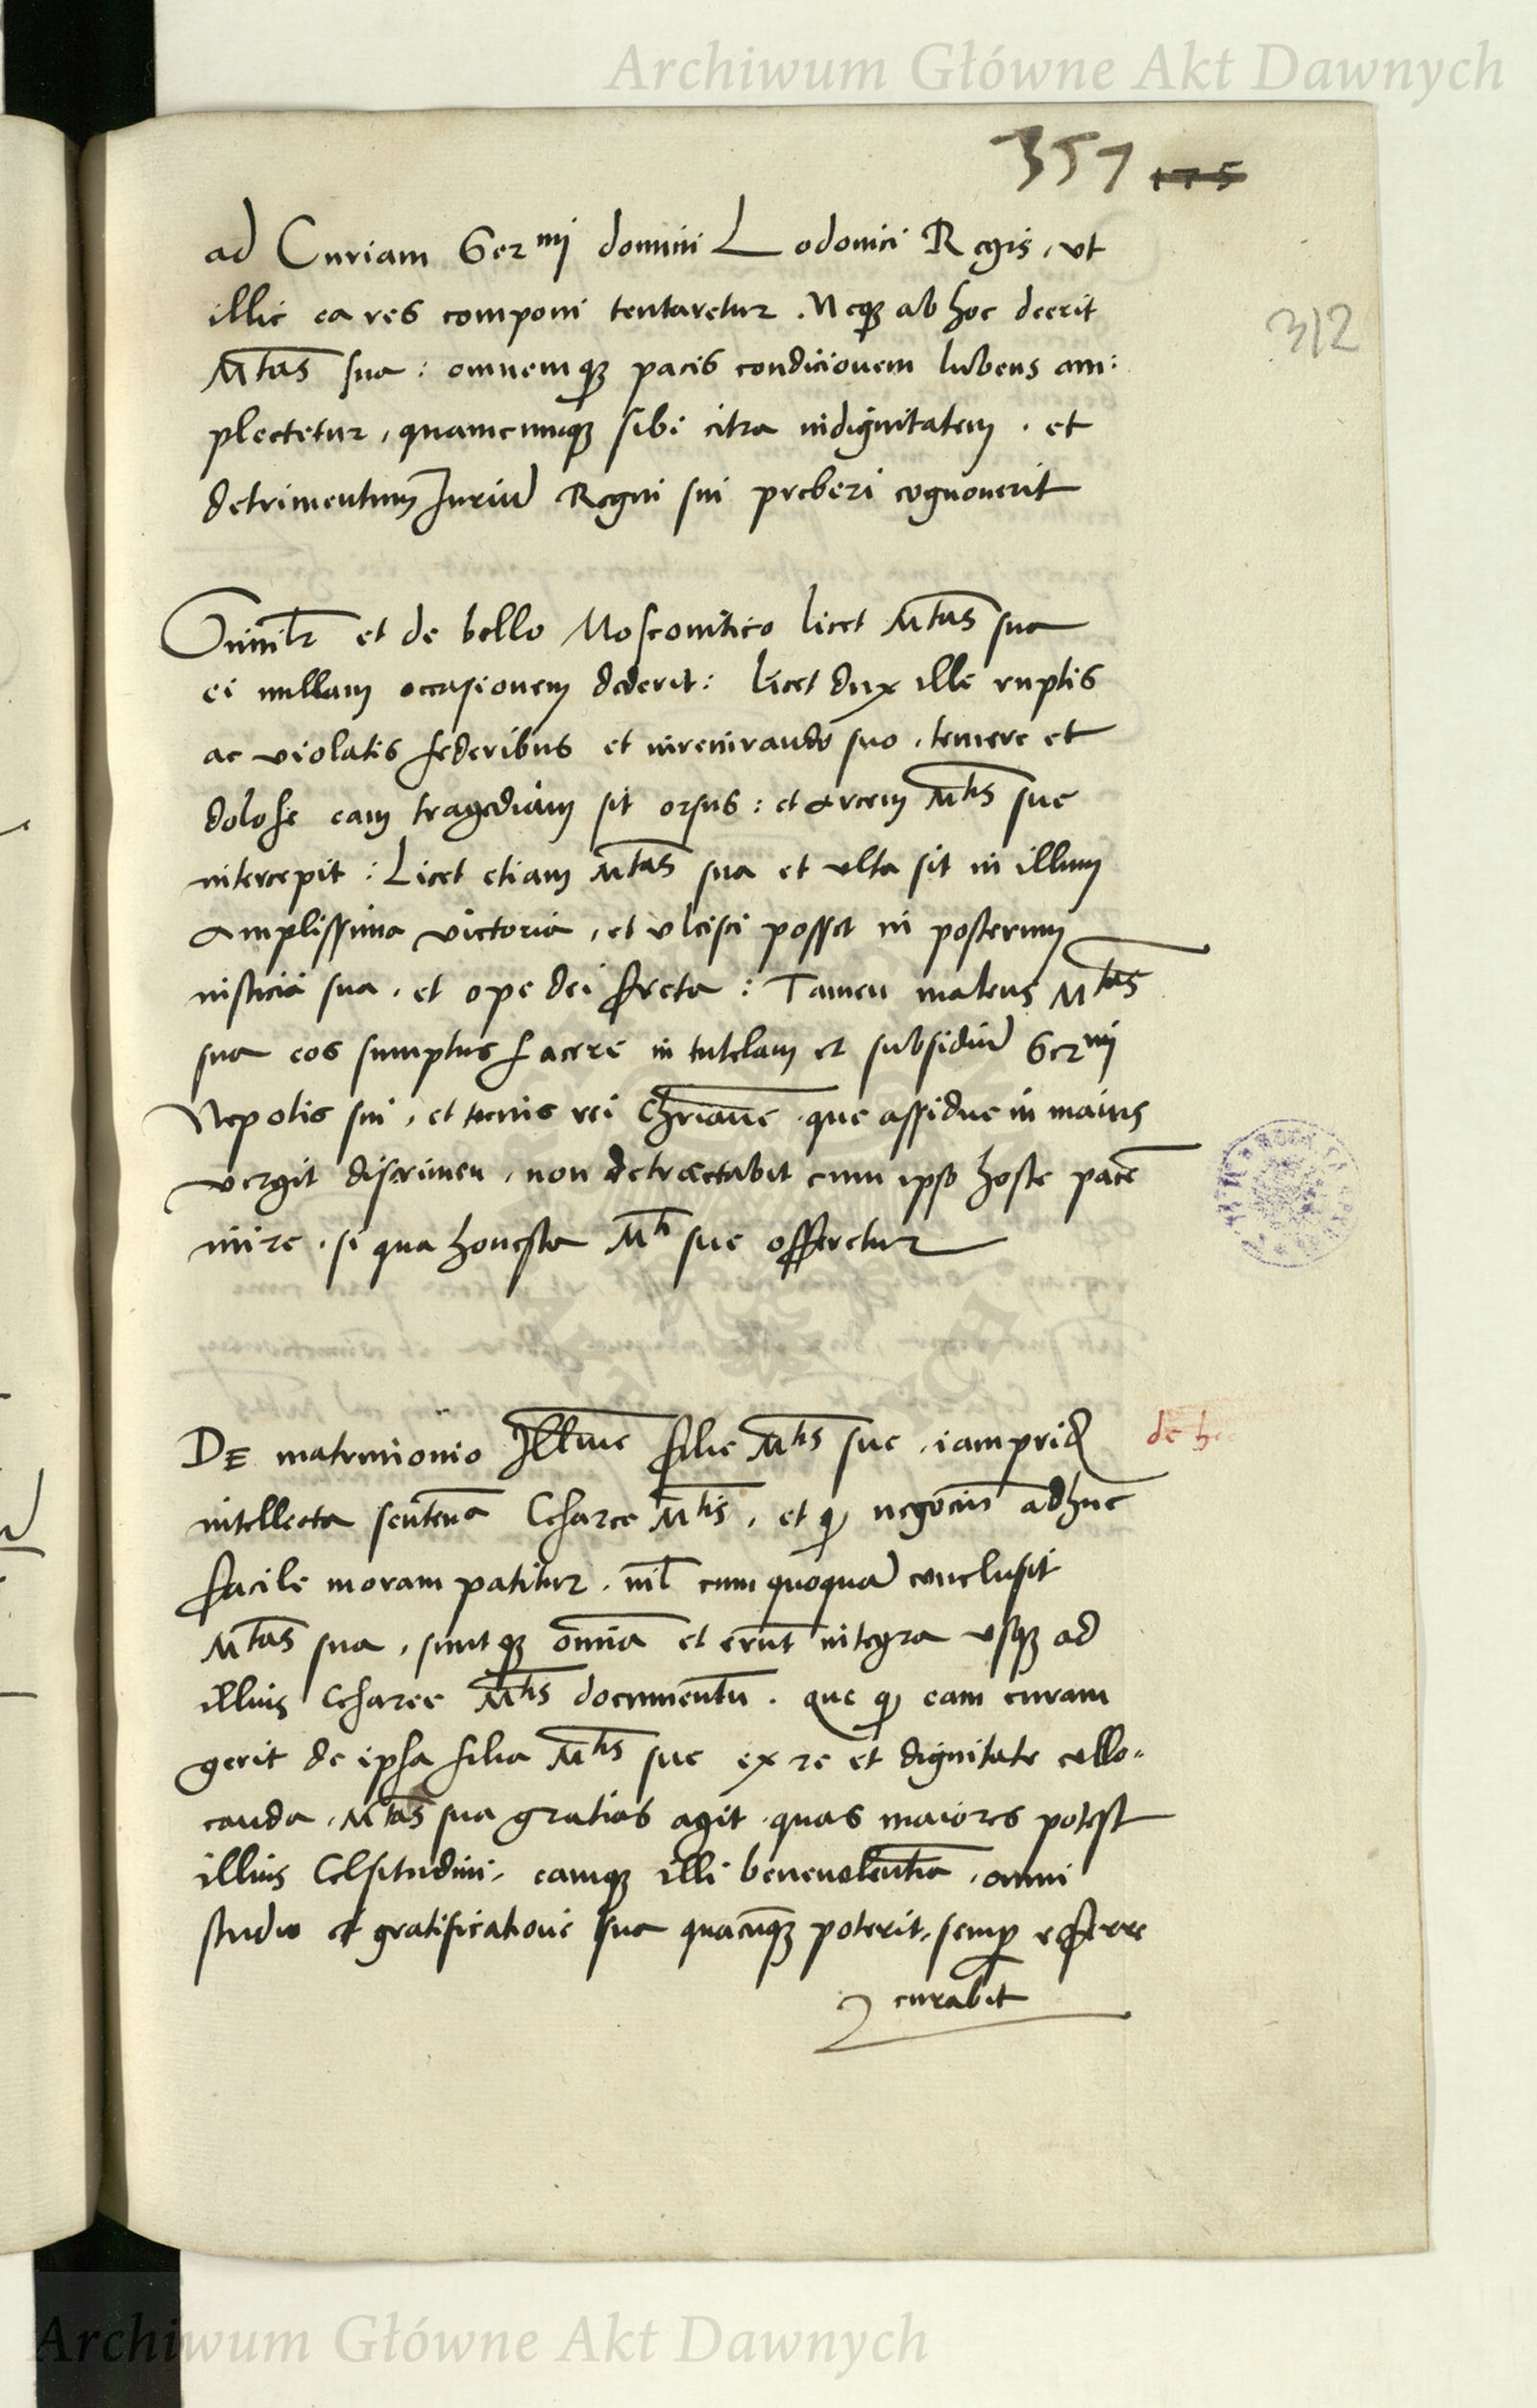 Archiwum Główne Akt Dawnych
357 175
312
ad Curiam Ser^mi domini Lodovici Regis, ut
illic ea res componi tentaretur. Neq; ab hoc deerit
M^tas sua: omnemq; pacis condicionem lubens am:
plectetur, quamcunq; sibi citra indignitatem. et
detrimentum Juriu Regni sui preberi cognoverit
Simil^r et de bello Moscovitico licet M^tas sua
ei nullam occasionem dederit: licet dux ille ruptis
ac violatis federibus et iureiurando suo, temere et
dolose eam tragediam sit orsus: et arcem M^tis sue
intercepit: Licet etiam M^tas sua et ulta sit in illum
amplissima victoria, et ulcisci posset in posterum
iusticia sua, et ope dei freta: Tamen malens M^tas
sua eos sumptus facere in tutelam et subsidiu Ser^mi
Nepotis sui, et tocius rei Chriane. que assidue in maius
vergit discrimen, non detrectabit cum ipso hoste pace
inire. si qua honesta M^ti sue offeretur
DE matrimonio Illme filie M^tis sue, iamprid
de h
intellecta sentencia Cesaree M^tis, et q negocium adhuc
facile moram patitur. nil cum quoqua conclusit
M^tas sua, suntq; omnia et erunt integra usq; ad
illius Cesaree M^tis documentu. que q eam curam
gerit de ipsa filia M^tis sue ex re et dignitate collo=
canda, M^tas sua gratias agit quas maiores potest
illius Celsitudini, eamq; illi benevolentia, omni
studio et gratificatione sua quacunq; poterit, semp referre
curabit
Archiwum Główne Akt Dawnych